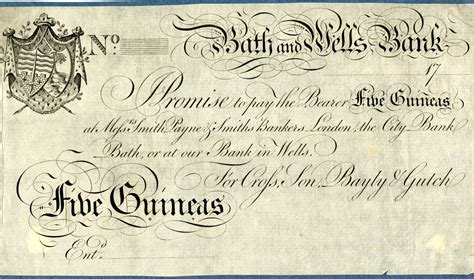 No Bath and Wells Bank
17
I Promise to pay the Bearer Five Guineas
at Messrs Smith Payne & Smiths Bankers London, the City Bank
Bath, or at our Bank in Wells.
For Cross, Son, Bayly & Gutch
Five Guineas
Entd